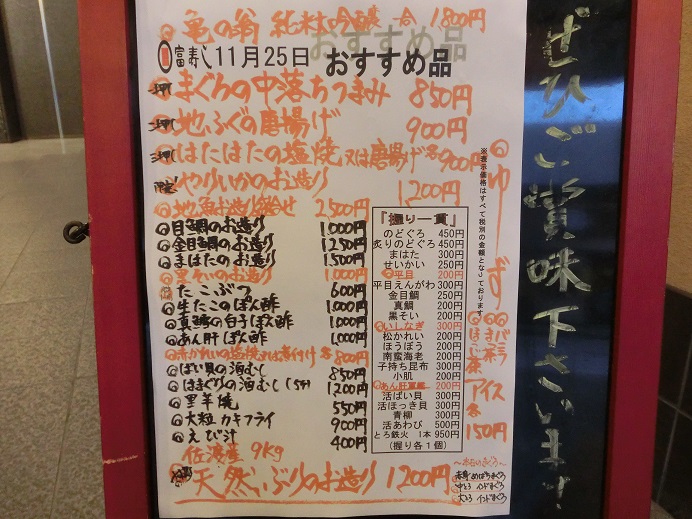 亀の翁 純米大吟醸 一合 1800円
富寿し 11月25日 おすすめ品
まぐろの中落ちつまみ 850円
地ふぐの唐揚げ 900円
はたはたの塩焼又は唐揚げ 各900円
やりいかのお造り 1,200円
地魚お造り盛合せ 2500円
目鯛のお造り 1,000円
金目鯛のお造り 1,250円
まはたのお造り 1,500円
黒そいのお造り 1,000円
たこぶつ 600円
生たこのぽん酢 1,000円
真鱈の白子ぽん酢 1,000円
あん肝ぽん酢 1,000円
赤かれいの塩焼又は煮付け 各800円
ばい貝の酒むし 850円
はまぐりの酒むし(5ヶ) 1,200円
里芋焼 550円
大粒カキフライ 900円
えび汁 400円
佐渡産 9kg
天然ぶりのお造り 1,200円
『握り一貫』
のどぐろ 450円
炙りのどぐろ 450円
まはた 300円
せいかい 250円
平目 200円
平目えんがわ 300円
金目鯛 250円
真鯛 200円
黒そい 200円
いしなぎ 300円
松かれい 200円
ほうぼう 200円
南蛮海老 200円
子持ち昆布 300円
小肌 200円
あん肝 200円
活ばい貝 300円
活ほっき貝 300円
青柳 300円
活あわび 500円
とろ鉄火 1本 950円
(握り各1個)
※表示価格はすべて税別の金額となっております
ゆーず
バニラ
ほうじ茶
アイス
各150円
赤身 めばちまぐろ
中とろ インドまぐろ
大とろ インドまぐろ
ぜひご賞味下さいます!